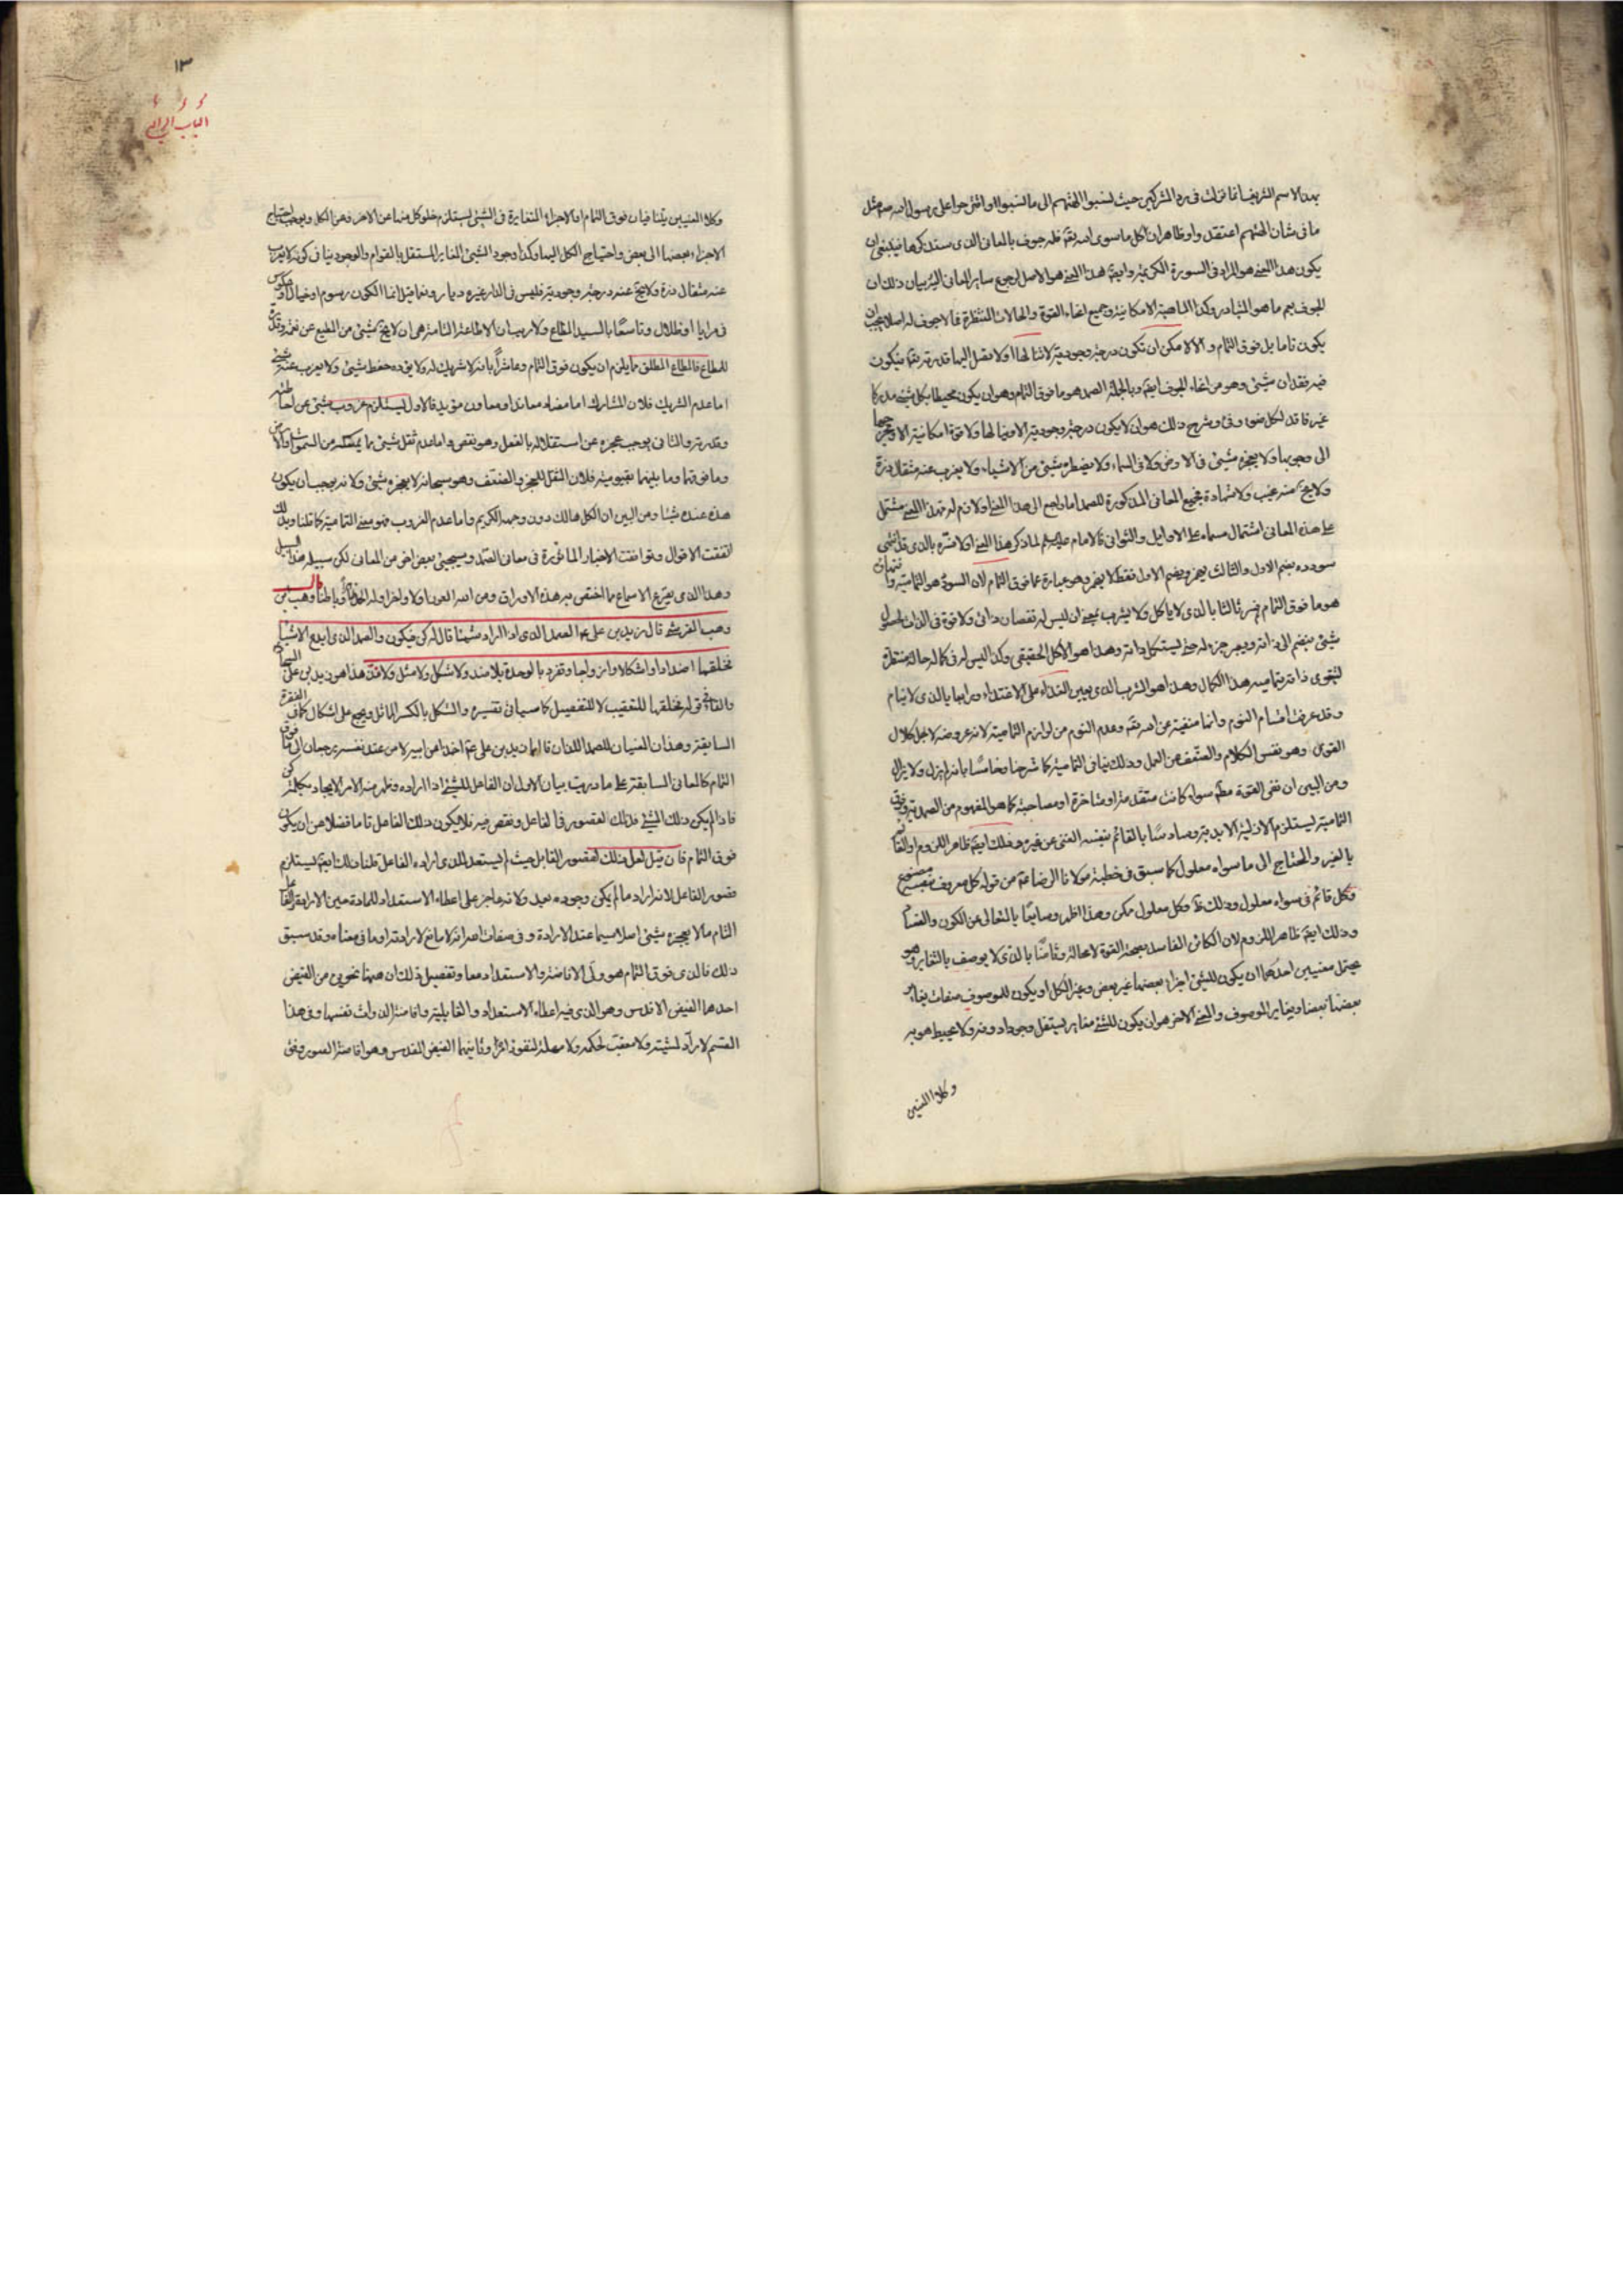 بهذا الاسم الشريف انما نزلت فى رد المشركين حيث نسبوا الهتهم الى ما نسبوا واقترحوا على رسول الله ص مثل
ما فى شان الهتهم اعتقدوا وظاهر ان كل ما سوى الله تقه له جوف بالمعانى الذى سنذكرها فينبغى ان
يكون هذا المعنى هو المراد فى السورة الكريمة وايضا هذا المعنى هو الاصل لجميع ساير المعانى اليه بيان ذلك ان
الجوف يعم ما هو المتبادر وكذا الماهية الامكانية وجميع انحاء القوة والحالات المنتظرة فما لا جوف له اصلا يجب ان
يكون تاما بل فوق التمام والا لامكن ان تكون درجة وجودية لا ينالها او لا يصل اليها قدرته تقه فيكون
فيه فقدان شيئ وهو من انحاء الجوف ايضا وبالجملة الصمد هو ما فوق التمام وهو ان يكون محيطا بكل شيئ مدركا
غير فاقد لكل ضوء وفئ وشرح ذلك هو ان لا يكون درجة وجودية الا وينالها ولا قوة امكانية الا ويخرجها
الى وجوبها ولا يعجزه شيئ فى الارض ولا فى السماء ولا يضطره شيئ من الاشياء ولا يعزب عنه مثقال ذرة
ولا يخرج منه غيب ولا شهادة فجميع المعانى المذكورة للصمد اما راجع الى هذا المعنى او لازم له فهذا المعنى مشتمل
على هذه المعانى اشتمال مسماه على الاوايل والثوانى فالامام عليه السلم لما ذكر هذا المعنى اولا فسّره بالذى قد انتهى
سودده بضم الاول والثالث يهمز وبضم الاول فقط لا يهمز وهو عبارة عما فوق التمام لان السودد هو التمامية وانتهائه
هو ما فوق التمام ثم فسره ثالثا بالذى لا ياكل ولا يشرب يعنى ان ليس له نقصان ذاتى ولا قوة فى الذات لحصول
شيئ ينضم الى ذاته ويصير جزء له حتى يستكمل ذاته وهذا هو الاكل الحقيقى وكذا ليس له فى كماله حالة منتظرة
ليقوى ذاته بتماميه هذا الكمال وهذا هو الشرب الذى يعين الغذاء على الاغتذاء ورابعا بالذى لا ينام
وقد عرفت اقسام النوم وانها منفية عن الله تقه وعدم النوم من لوازم التمامية لانه عروضه لاجل كلال
القوى وهو نفس الكلام والضعف عن العمل وذلك ينافى التمامية كما شرحنا وخامسا بانه لم يزل ولا يزال
ومن البين ان نفى القوة مطلقا سواء كانت متقدمة او متاخرة او مصاحبة كما هو المفهوم من الصمدية وفوق
التمامية يستلزم الازلية الابدية وسادسًا بالقائم بنفسه الغنى عن غيره وذلك ايضا ظاهر اللزوم اذ القائم
بالغير والمحتاج الى ما سواه معلول كما سبق فى خطبة مولانا الرضا ع من قوله كل معروف بنفسه مصنوع
وكل قائم فى سواه معلول وذلك ظ وكل معلول ممكن وهذا اظهر وسابعًا بالتعالى عن الكون والفساد
وذلك ايضا ظاهر اللزوم لان الكائن الفاسد يصحبه القوة لا محالة وثامنًا بالذى لا يوصف بالتغاير وهو
يحتمل معنيين احدهما ان يكون للشيئ اجزاء بعضها غير بعض وغير الكل او يكون للموصوف صفات يغاير
بعضها بعضا ويغاير الموصوف والمعنى الاخر هو ان يكون للشيئ مغاير يستقل وجودا دونه ولا يحيط هو به
وكلا المعنيين
١٣
الباب الرابع
وكلا المعنيين ينافيان فوق التمام اذ الاجزاء المتغايرة فى الشيئ يستلزم خلو كل منها عن الاخر وعن الكل ويوجب احتياج
الاجزاء بعضها الى بعض واحتياج الكل اليها وكذا وجود الشيئ المغاير المستقل بالقوام والوجود ينافى كونه لا يعزب
عنه مثقال ذرة ولا يخرج عنه درجة وجودية فليس فى الدار غيره ديار وتماثيل انما الكون رسوم او خيال او عكوس
فى مرايا او ظلال وتاسعًا بالسيد المطاع ولا ريب ان الاطاعة التامة هى ان لا يخرج شيئ من المطيع عن
للمطاع فالمطاع المطلق مما يلزم ان يكون فوق التمام وعاشرًا بانه لا شريك له ولا يؤده حفظ شيئ ولا يعزب عنه شيئ
اما عدم الشريك فلان المشارك اما مضاد معاند او معاون مؤيد فالاول يستلزم عزوب شيئ عن احاطته
وقدرته والثانى يوجب عجزه عن استقلاله بالفعل وهو نقص واما عدم ثقل شيئ مما يمسكه من السموات والارض
وما فوقها وما بينهما بقيوميته فلان الثقل للعجز والضعف وهو سبحانه لا يعجزه شيئ ولانه يوجب ان يكون
هذه عنده شيئا ومن البين ان الكل هالك دون وجهه الكريم واما عدم العزوب فهو معنى التمامية كما قلنا وبذلك
اتفقت الاقوال وتوافقت الاخبار الماثورة فى معانى الصمد وسيجيئ بعض اخر من المعانى لكن سبيله هذا السبيل
وهذا الذى يقرع الاسماع مما اختص به هذه الاوراق ومن الله العون اولا واخرا وله الحمد ظاهرا وباطنا قال وهب بن
وهب القرشى قال زيد بن على ع الصمد الذى اذا اراد شيئا قال له كن فيكون والصمد الذى ابدع الاشياء
فخلقها اضدادا واشكالا وازواجا وتفرد بالوحدة بلا ضد ولا شكل ولا مثل ولا ند هذا هو زيد بن على السجاد
والفاء فى قوله فخلقها للتعقيب لا للتفصيل كما سيأتى تفسيره والشكل بالكسر المماثل ويجمع على اشكال كما فى الفقرة
السابقة وهذان المعنيان للصمد اللذان قالهما زيد بن على ع اخذا من ابيه لا من عند نفسه يرجعان الى ما فوق
التمام كالمعانى السابقة على ما دريت بيان الاول ان الفاعل للشيئ اذا اراده وظهر منه الامر الايجاد بكلمة كن
فاذا لم يكن ذلك الشيئ فذلك لقصور فى الفاعل ونقص فيه فلا يكون ذلك الفاعل تاما فضلا عن ان يكون
فوق التمام فان قيل لعل ذلك لقصور القابل حيث لم يستعد للذى اراده الفاعل قلنا ذلك ايضا يستلزم
قصور الفاعل لانه اراد ما لم يكن وجوده بعد ولانه عاجز على اعطاء الاستعداد للمادة حين الارادة
التام ما لا يعجزه شيئ اصلا سيما عند الارادة وفى صفات الله انه لا مانع لارادته وما فى معناه وقد سبق
ذلك فالذى فوق التمام هو ولّى الافاضة والاستعداد معا وتفصيل ذلك ان هيهنا نحوين من الفيض
احدهما الفيض الاقدس وهو الذى فيه اعطاء الاستعداد والقابلية وافاضة الذوات نفسها وفى هذا
القسم لا رآد لمشيته ولا معقب لحكمه ولا مهلة لنفوذ امره وثانيهما الفيض المقدس وهو افاضة الصور وفق